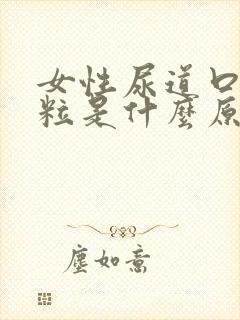 女性尿道口
粒是什麼原
塵如意